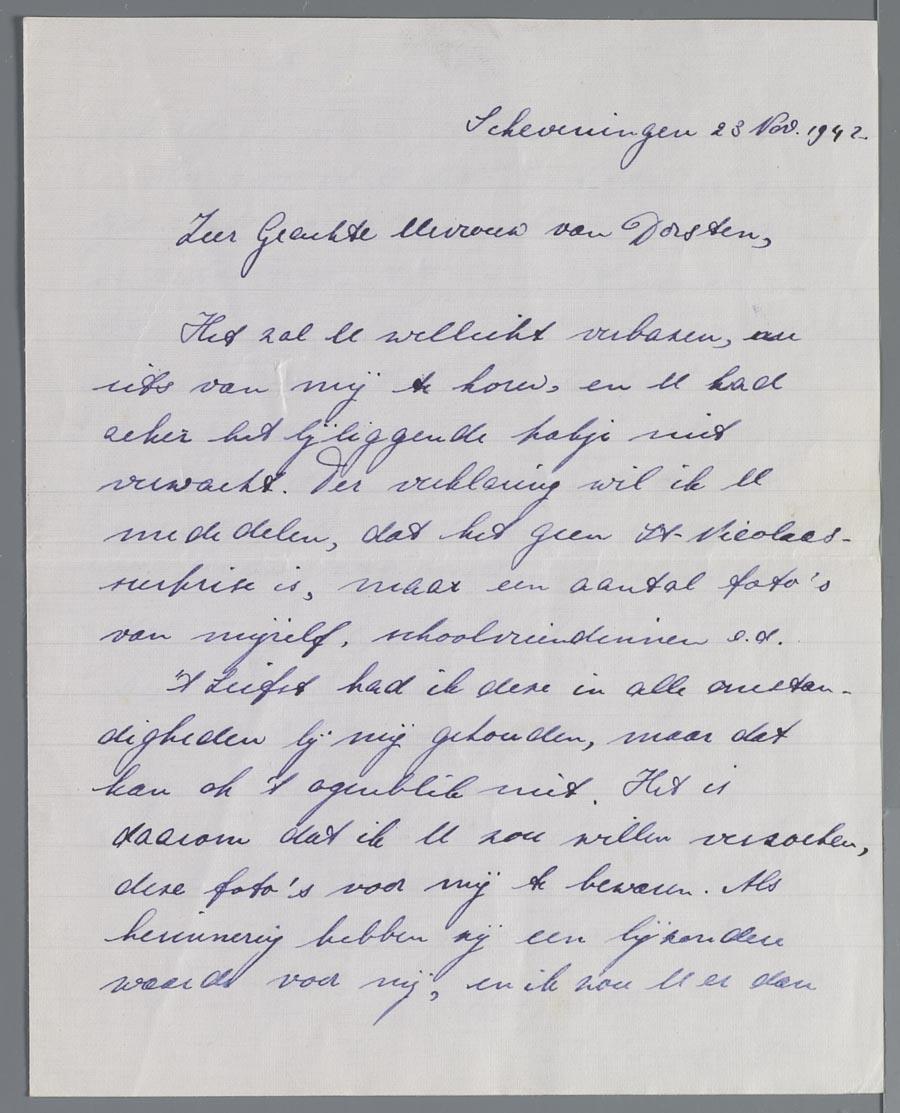 Scheveningen 23 Nov. 1942
Zeer Geachte Mevrouw van Dorsten,
Het zal U wellicht verbazen, nu
iets van mij te horen, en U had
zeker het bijliggende pakje niet
verwacht. Ter verklaring wil ik U
mededelen, dat het geen St-Nicolaas-
surprise is, maar een aantal foto's
van mijzelf, schoolvriendinnen e.d.
't Liefst had ik deze in alle omstan-
digheden bij mij gehouden, maar dat
kan op 't ogenblik niet. Het is
daarom dat ik U zou willen verzoeken,
deze foto's voor mij te bewaren. Als
herinnering hebben zij een bijzondere
waarde voor mij, en ik zou U er dan